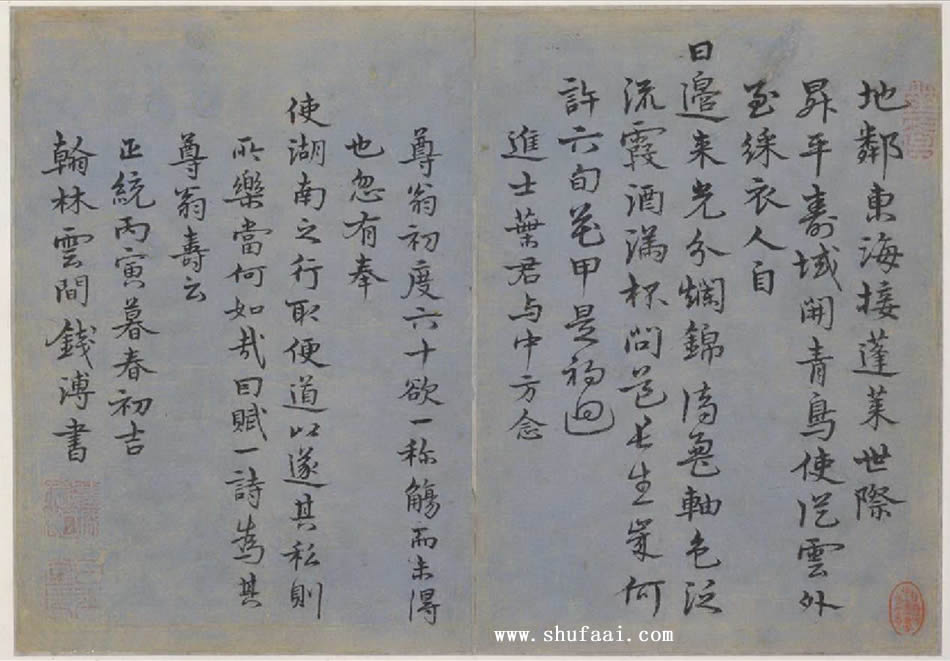 地鄰東海接蓬萊世際
昇平壽域開青鳥使從雲外
至綵衣人自
日邊來光分爛錦軸色泛
流霞酒滿杯問道長生策何
許六旬花甲是初迴
進士葉君与中方念
尊翁初度六十欲一称觴而未得
也忽有奉
使湖南之行取便道以遂其私則
所樂當何如哉因賦一詩為其
尊翁壽云
正統丙寅暮春初吉
翰林雲間錢溥書
www.shufaai.com